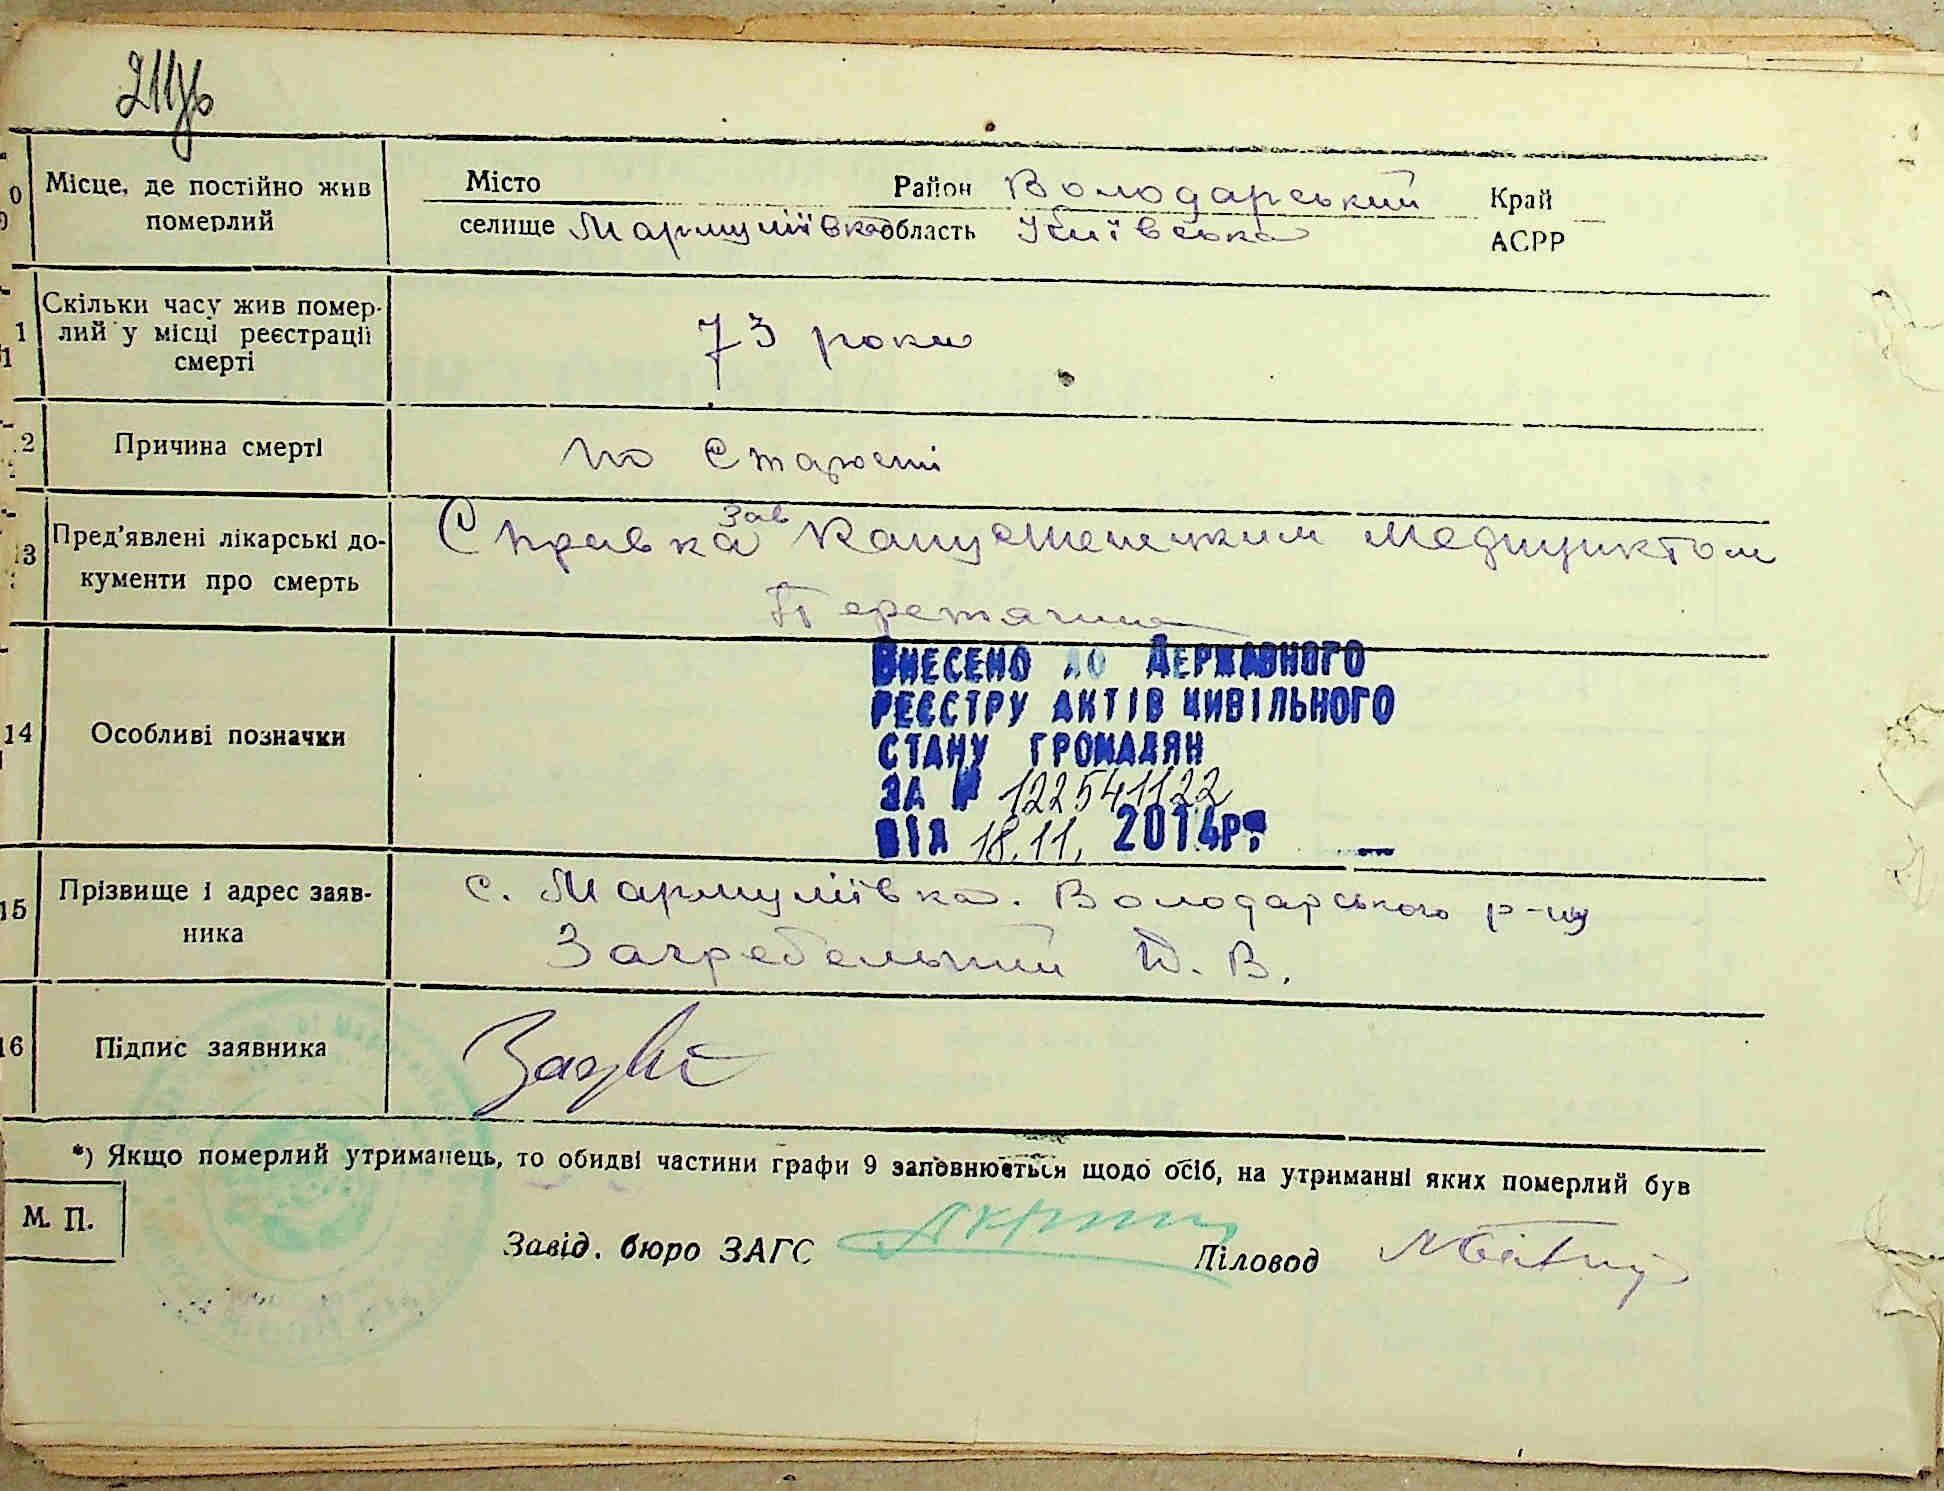 211зв
10
Місце, де постійно жив
померлий
Місто Район Володарський Край
селище Мармуліївка область Київська АСРР
11
Скільки часу жив помер-
лий у місці реєстрації
смерті
73 роки
12
Причина смерті
по старості
13
Пред'явлені лікарські до-
кументи про смерть
зав
Справка медпунктом
14
Особливі позначки
Внесено до Державного
реєстру актів цивільного
стану громадян
за № 122541122
від 18.11. 2014р.
15
Прізвище і адрес заяв-
ника
с. Мармуліївка. Володарського р-ну
Загребельний В.
16
Підпис заявника
*) Якщо померлий утриманець, то обидві частини графи 9 заповнюється щодо осіб, на утриманні яких померлий був
М. П.
Завід. бюро ЗАГС Діловод